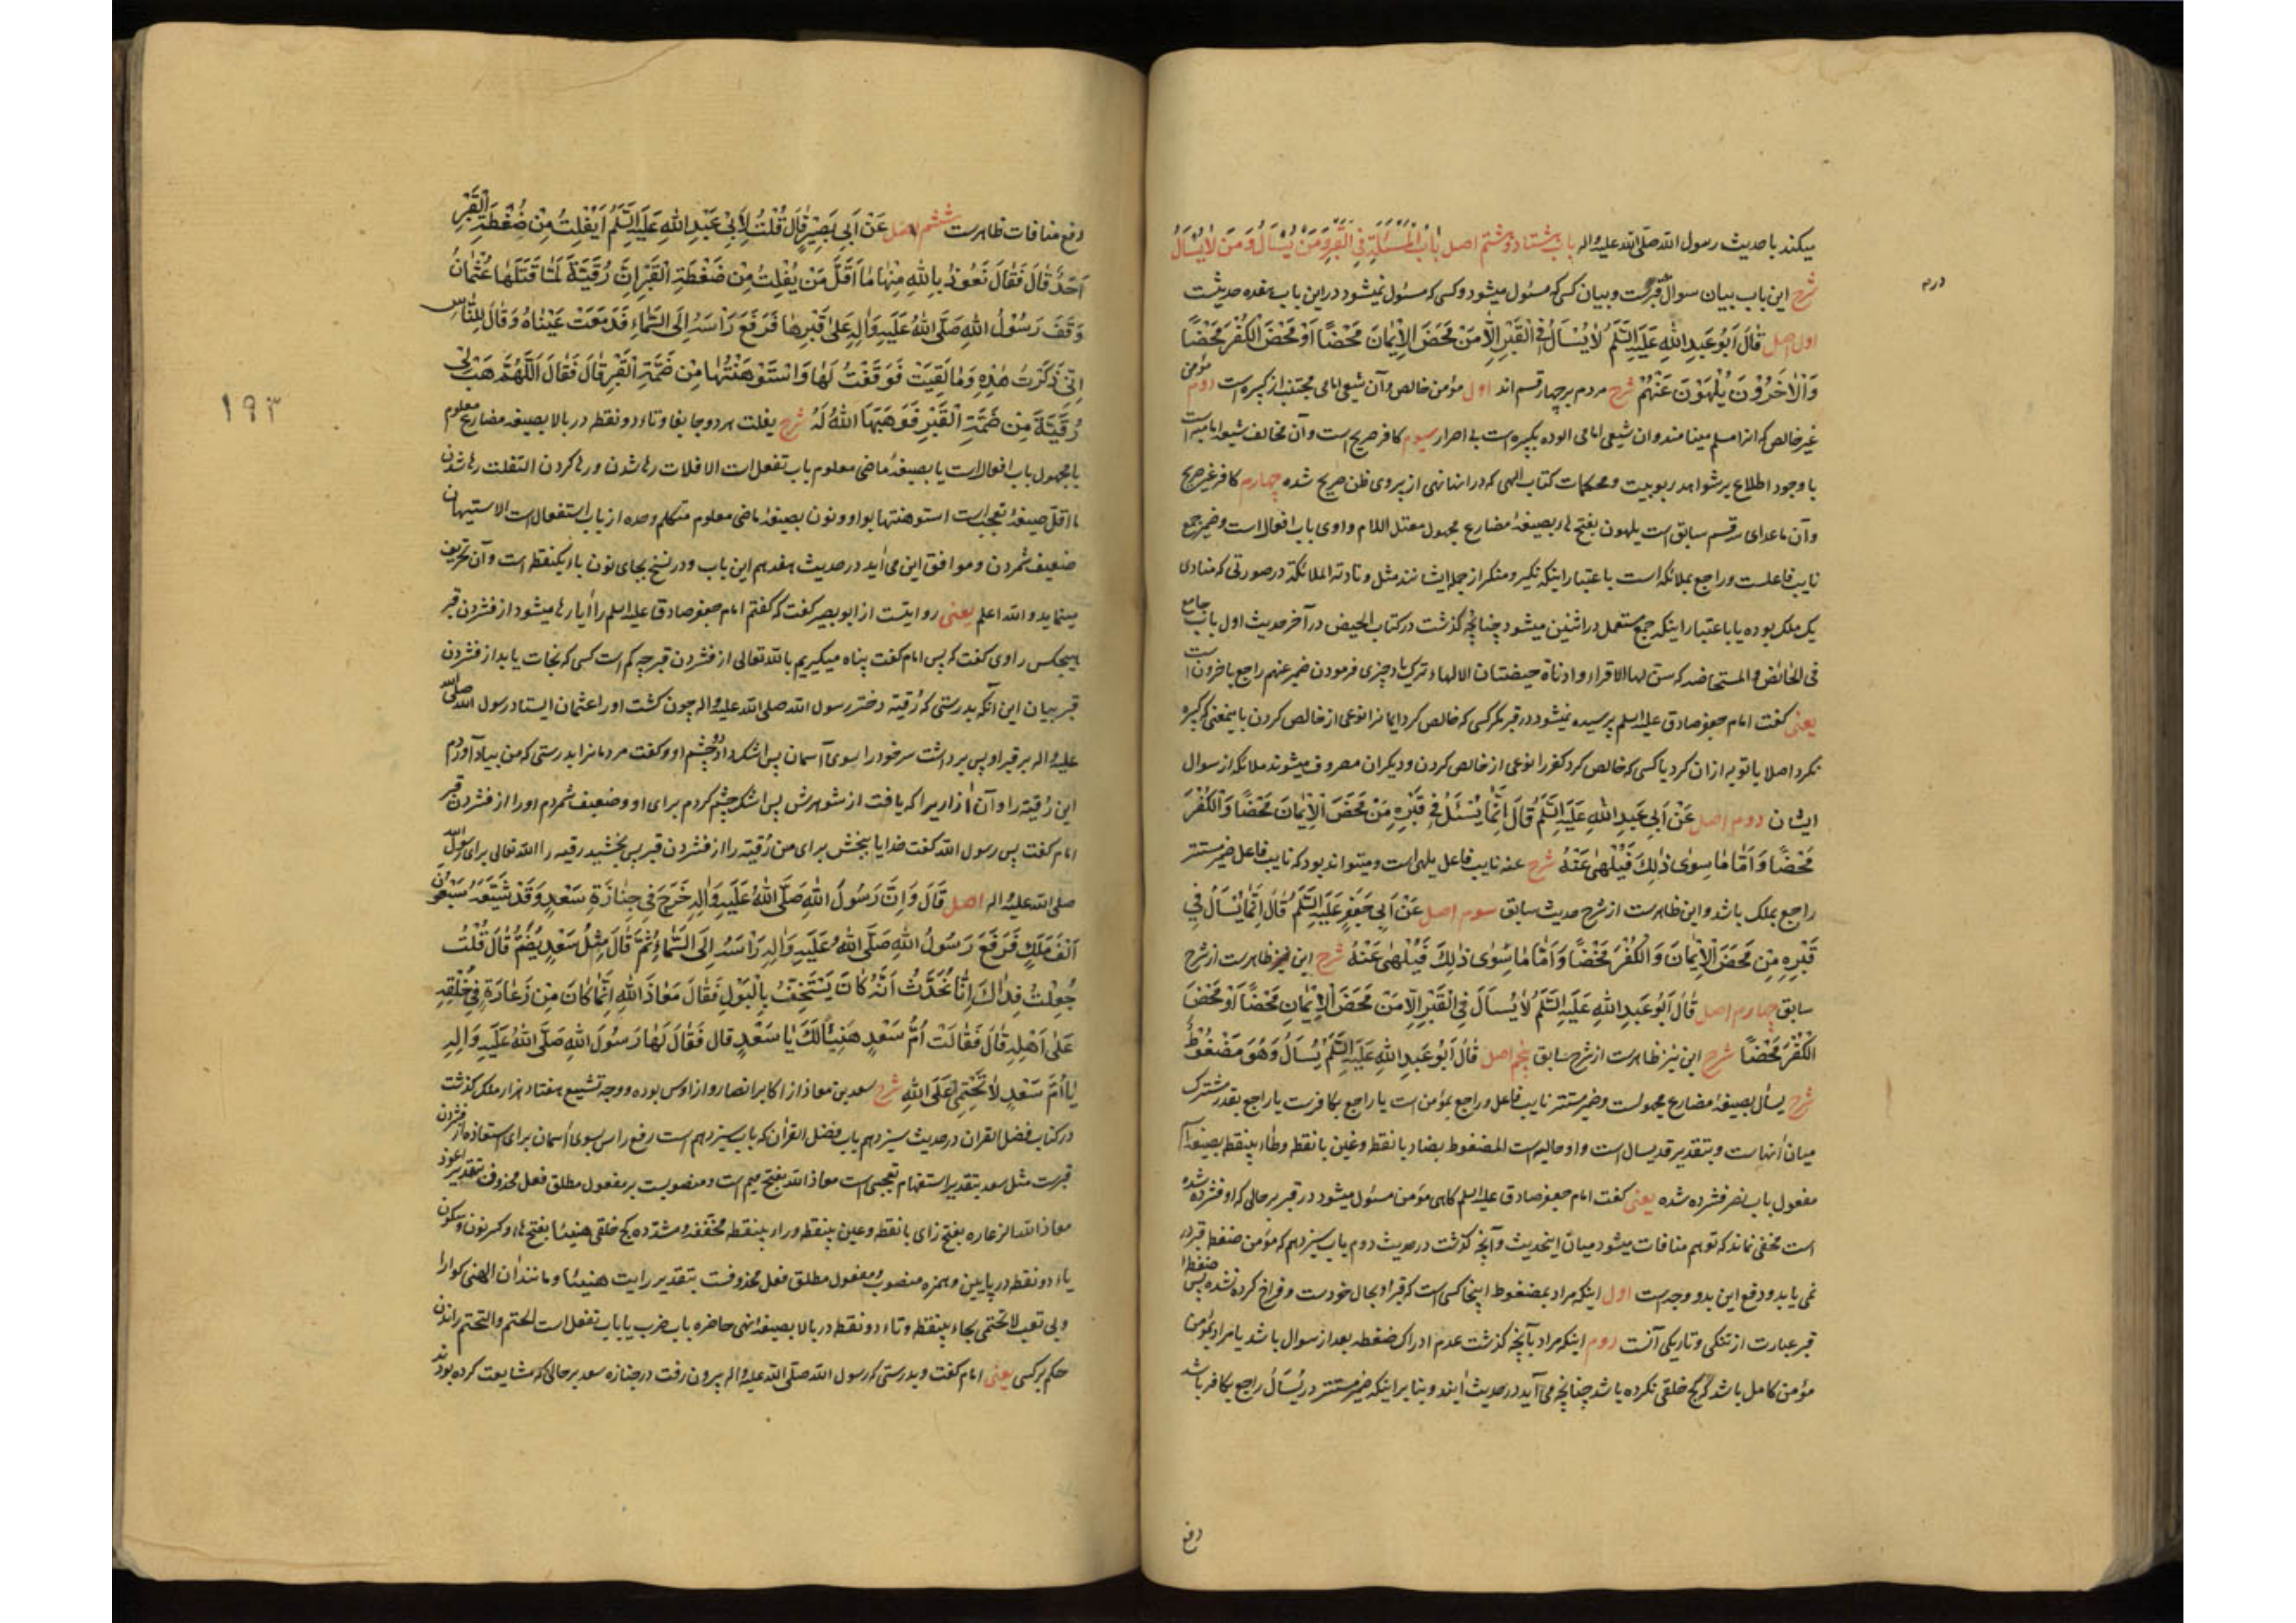 میکند با حدیث رسول الله صلی الله علیه و اله باب هشتاد و هشتم اصل بَابُ الْمَسْئَلَةِ فِی الْقَبْرِ وَمَنْ یُسْأَلُ وَمَنْ لَایُسْأَلُ
شرح این باب بیان سوال قبرست و بیان کسی که مسئول میشود و کسی که مسئول نمیشود در این باب هفده حدیثست
اول اصل قَالَ أَبُو عَبْدِ اللهِ عَلَیْهِ السَّلَمُ لَایُسْأَلُ فِی الْقَبْرِ إِلَّا مَنْ مَحَضَ الْإِیْمَانَ مَحْضًا أَوْ مَحَضَ الْکُفْرَ مَحْضًا
وَالْآخَرُوْنَ یُلْهَوْنَ عَنْهُمْ شرح مردم بر چهار قسم اند اول مؤمن خالص و آن شیعی امامی مجتنب از کبیره است دوم مؤمن
غیر خالص که انرا مسلم مینامند و ان شیعی امامی الوده بکبیره است بی اصرار سیوم کافر صریح است و آن مخالف شیعه امامیه است
با وجود اطلاع بر شواهد ربوبیت و محکمات کتاب الهی که در انها نهی از پیروی ظن صریح شده چهارم کافر غیر صریح
و آن ماعدای سه قسم سابق است یلهون بفتح ها بصیغهٔ مضارع مجهول معتل اللام واوی باب افعال است و ضمیر جمع
نایب فاعلست و راجع بملائکه است باعتبار اینکه نکیر و منکر از جمله ایشانند مثل و نادته الملائکة در صورتی که منادی
یک ملک بوده یا باعتبار اینکه جمع مستعمل در اثنین میشود چنانچه گذشت در کتاب الحیض در آخر حدیث اول باب جامع
فی الحائض و المستحاضه که سن لها الاقراء و ادناة حیضتان الالهاء ترک یاد چیزی فرمودن ضمیر عنهم راجع باخرون است
یعنی گفت امام جعفر صادق علیه السلم پرسیده نمیشود در قبر مگر کسی که خالص کرد ایمانرا نوعی از خالص کردن باینمعنی که کبیره
نکرد اصلا یا توبه از ان کرد یا کسی که خالص کرد کفر را نوعی از خالص کردن و دیگران مصروف میشوند ملائکه از سوال
ایشان دوم اصل عَنْ أَبِی عَبْدِ اللهِ عَلَیْهِ السَّلَمُ قَالَ إِنَّمَا یُسْئَلُ فِی قَبْرِهِ مَنْ مَحَضَ الْإِیْمَانَ مَحْضًا وَالْکُفْرَ
مَحْضًا وَأَمَّا مَا سِوٰی ذٰلِکَ فَیُلْهٰی عَنْهُ شرح عنه نایب فاعل یلهی است و میتواند بود که نایب فاعل ضمیر مستتر
راجع بملک باشد و این ظاهرست از شرح حدیث سابق سوم اصل عَنْ أَبِی جَعْفَرٍ عَلَیْهِ السَّلَمُ قَالَ إِنَّمَا یُسْأَلُ فِی
قَبْرِهِ مَنْ مَحَضَ الْإِیْمَانَ وَالْکُفْرَ مَحْضًا وَأَمَّا مَا سِوٰی ذٰلِکَ فَیُلْهٰی عَنْهُ شرح این نیز ظاهرست از شرح
سابق چهارم اصل قَالَ أَبُو عَبْدِ اللهِ عَلَیْهِ السَّلَمُ لَایُسْأَلُ فِی الْقَبْرِ إِلَّا مَنْ مَحَضَ الْإِیْمَانَ مَحْضًا أَوْ مَحَضَ
الْکُفْرَ مَحْضًا شرح این نیز ظاهرست از شرح سابق پنجم اصل قَالَ أَبُو عَبْدِ اللهِ عَلَیْهِ السَّلَمُ یُسْأَلُ وَهُوَ مَضْغُوْطٌ
شرح یسأل بصیغهٔ مضارع مجهولست و ضمیر مستتر نایب فاعل و راجع بمؤمن است یا راجع بکافرست یا راجع بقدر مشترک
میان آنهاست و بتقدیر قد یسال است و او حالیه است المضغوط بضاد بانقطه و غین بانقطه و طاء بینقطه بصیغه اسم
مفعول باب نصر فشرده شده یعنی گفت امام جعفر صادق علیه السلم گاهی مؤمن مسئول میشود در قبر بر حالی که او فشرده شده
است مخفی نماند که توهم منافات میشود میان اینحدیث و آنچه گذشت در حدیث دوم باب سیزدهم که مؤمن ضغطه قبر در
نمی یابد و دفع این بدو وجه است اول اینکه مراد بمضغوط اینجا کسی است که قبر او بحال خودست و فراخ کرده نشده پس ضغطه
قبر عبارت از تنگی و تاریکی آنست دوم اینکه مراد بآنچه گذشت عدم ادراک ضغطه بعد از سوال باشد یا مراد بمؤمن
مؤمن کامل باشد که کج خلقی نکرده باشد چنانچه می آید در حدیث آینده و بنا بر اینکه ضمیر مستتر در یُسْأَلُ راجع بکافر باشد
دفع
دفع منافات ظاهرست ششم اصل عَنْ أَبِی بَصِیْرٍ قَالَ قُلْتُ لِأَبِیْ عَبْدِ اللهِ عَلَیْهِ السَّلَمُ أَیُفْلِتُ مِنْ ضَغْطَةِ الْقَبْرِ
أَحَدٌ قَالَ فَقَالَ نَعُوْذُ بِاللهِ مِنْهَا مَا أَقَلَّ مَنْ یُفْلِتُ مِنْ ضَغْطَةِ الْقَبْرِ إِنَّ رُقَیَّةَ لَمَّا قَتَلَهَا عُثْمَانُ
وَقَفَ رَسُوْلُ اللهِ صَلَّی اللهُ عَلَیْهِ وَاٰلِهِ عَلٰی قَبْرِهَا فَرَفَعَ رَأْسَهُ إِلَی السَّمَاءِ فَدَمَعَتْ عَیْنَاهُ وَقَالَ لِلنَّاسِ
إِنِّیْ ذَکَرْتُ هٰذِهِ وَمَا لَقِیَتْ فَوَقَفْتُ لَهَا وَاسْتَوْهَنْتُهَا مِنْ ضَمَّةِ الْقَبْرِ قَالَ فَقَالَ اَللّٰهُمَّ هَبْ لِیْ
رُقَیَّةَ مِنْ ضَمَّةِ الْقَبْرِ فَوَهَبَهَا اللهُ لَهُ شرح یفلت هر دو جا بفا و تاء دو نقطه در بالا بصیغه مضارع معلوم
یا مجهول باب افعال است یا بصیغهٔ ماضی معلوم باب تفعل است الافلات رها شدن و رها کردن التفلت رها شدن
ما اقل صیغهٔ تعجب است استوهنتها بواو و نون بصیغهٔ ماضی معلوم متکلم وحده از باب استفعال است الاستیهان
ضعیف شمردن و موافق این می آید در حدیث هفدهم این باب و در نسخ بجای نون باء یکنقطه است و آن تحریف
مینماید و الله اعلم یعنی روایتست از ابو بصیر گفت که گفتم امام جعفر صادق علیه السلم را آیا رها میشود از فشردن قبر
هیچکس راوی گفت که پس امام گفت پناه میگیریم بالله تعالی از فشردن قبر چه کم است کسی که نجات یابد از فشردن
قبر بیان این آنکه بدرستی که رُقیّه دختر رسول الله صلی الله علیه و اله چون کشت او را عثمان ایستاد رسول الله صلی الله
علیه و اله بر قبر او پس برداشت سر خود را بسوی آسمان پس اشک داد دو چشم او و گفت مردمانرا بدرستی که من بیاد آوردم
این رُقیّه را و آن آزاریرا که یافت از شوهرش پس اشک چشم کردم برای او و ضعیف شمردم او را از فشردن قبر
امام گفت پس رسول الله گفت خدایا ببخش برای من رُقیّه را از فشردن قبر پس بخشید رقیه را الله تعالی برای رسول الله
صلی الله علیه و اله اصل قَالَ وَإِنَّ رَسُوْلَ اللهِ صَلَّی اللهُ عَلَیْهِ وَاٰلِهِ خَرَجَ فِی جِنَازَةِ سَعْدٍ وَقَدْ شَیَّعَهُ سَبْعُوْنَ
أَلْفَ مَلَکٍ فَرَفَعَ رَسُوْلُ اللهِ صَلَّی اللهُ عَلَیْهِ وَاٰلِهِ رَأْسَهُ إِلَی السَّمَاءِ ثُمَّ قَالَ مِثْلُ سَعْدٍ یُضَمُّ قَالَ قُلْتُ
جُعِلْتُ فِدَاکَ إِنَّا نُحَدَّثُ أَنَّهُ کَانَ یَسْتَخِفُّ بِالْبَوْلِ فَقَالَ مَعَاذَ اللهِ إِنَّمَا کَانَ مِنْ زَعَارَّةٍ فِیْ خُلْقِهِ
عَلٰی أَهْلِهِ قَالَ فَقَالَتْ أُمُّ سَعْدٍ هَنِیْئًا لَکَ یَا سَعْدُ قال فَقَالَ لَهَا رَسُوْلُ اللهِ صَلَّی اللهُ عَلَیْهِ وَاٰلِهِ
یَا أُمَّ سَعْدٍ لَا تَحْتِمِیْ عَلَی اللهِ شرح سعد بن معاذ از اکابر انصار و از اوس بوده و وجه تشییع هفتاد هزار ملک گذشت
در کتاب فضل القران در حدیث سیزدهم باب فضل القران که باب سیزدهم است رفع راس بسوی آسمان برای استعاذه از فشردن
قبرست مثل سعد بتقدیر استفهام تعجبی است معاذ الله بفتح میم است و منصوبست بر مفعول مطلق فعل محذوف بتقدیر اعوذ
معاذ الله الزعاره بفتح زای بانقطه و عین بینقطه و راء بینقطه مخففه و مشدده کج خلقی هنیئا بفتح هاء و کسر نون و سکون
یاء دو نقطه در پایین و همزه منصوب و مفعول مطلق فعل محذوفست بتقدیر رایت هنیئا و مانند ان الهنی گوارا
و بی تعب لا تحتمی بحاء بینقطه و تاء دو نقطه در بالا بصیغهٔ نهی حاضره باب ضرب یا باب تفعل است الحتم و التحتم راندن
حکم بر کسی یعنی امام گفت و بدرستی که رسول الله صلی الله علیه و اله بیرون رفت در جنازه سعد بر حالی که مشایعت کرده بودند
۱۹۳